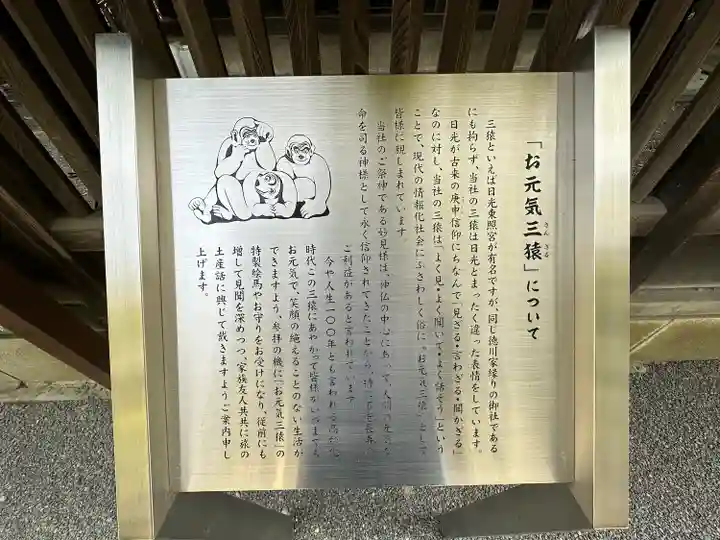 「お元気三猿」について
さん ざる
三猿といえば日光東照宮が有名ですが、同じ徳川家縁りの御社である
にも拘らず、当社の三猿は日光とまったく違った表情をしています。
日光が古来の庚申信仰にちなんで「見ざる・言わざる・聞かざる」
なのに対し、当社の三猿は「よく見・よく聞いて・よく話そう」という
ことで、現代の情報化社会にふさわしく俗に、「お元気三猿」として
皆様に親しまれています。
当社のご祭神である妙見様は、神仏の中心にあって、人間の
命を司る神様として永く信仰されてきたことから、
ご利益があると言われています
今や人生一〇〇年とも言われる
時代この三猿にあやかって皆様がいつまでも
お元気で、笑顔の絶えることのない生活が
できますよう、参拝の機に「お元気三猿」の
特製絵馬やお守りをお受けになり、従前にも
増して見聞を深めつつ、家族友人共共に旅の
土産話に興じて戴きますようご案内申し
上げます。